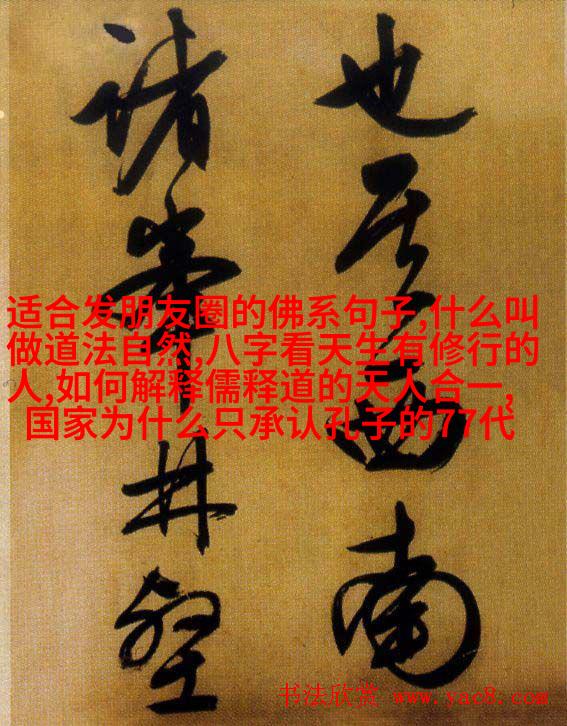 也其西南
諸峯林壑
适合发朋友圈的佛系句子,什么叫
做道法自然,八字看天生有修行的
人,如何解释儒释道的天人合一,
国家为什么只承认孔子的77代
书法欣赏 www.yac8.com